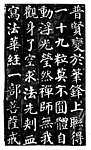 普賢變於筆鋒上聯得
一十九粒莫不圓體自
動浮光瑩然禪師無我
觀身了空求法先刺血
寫法華經一部菩薩戒